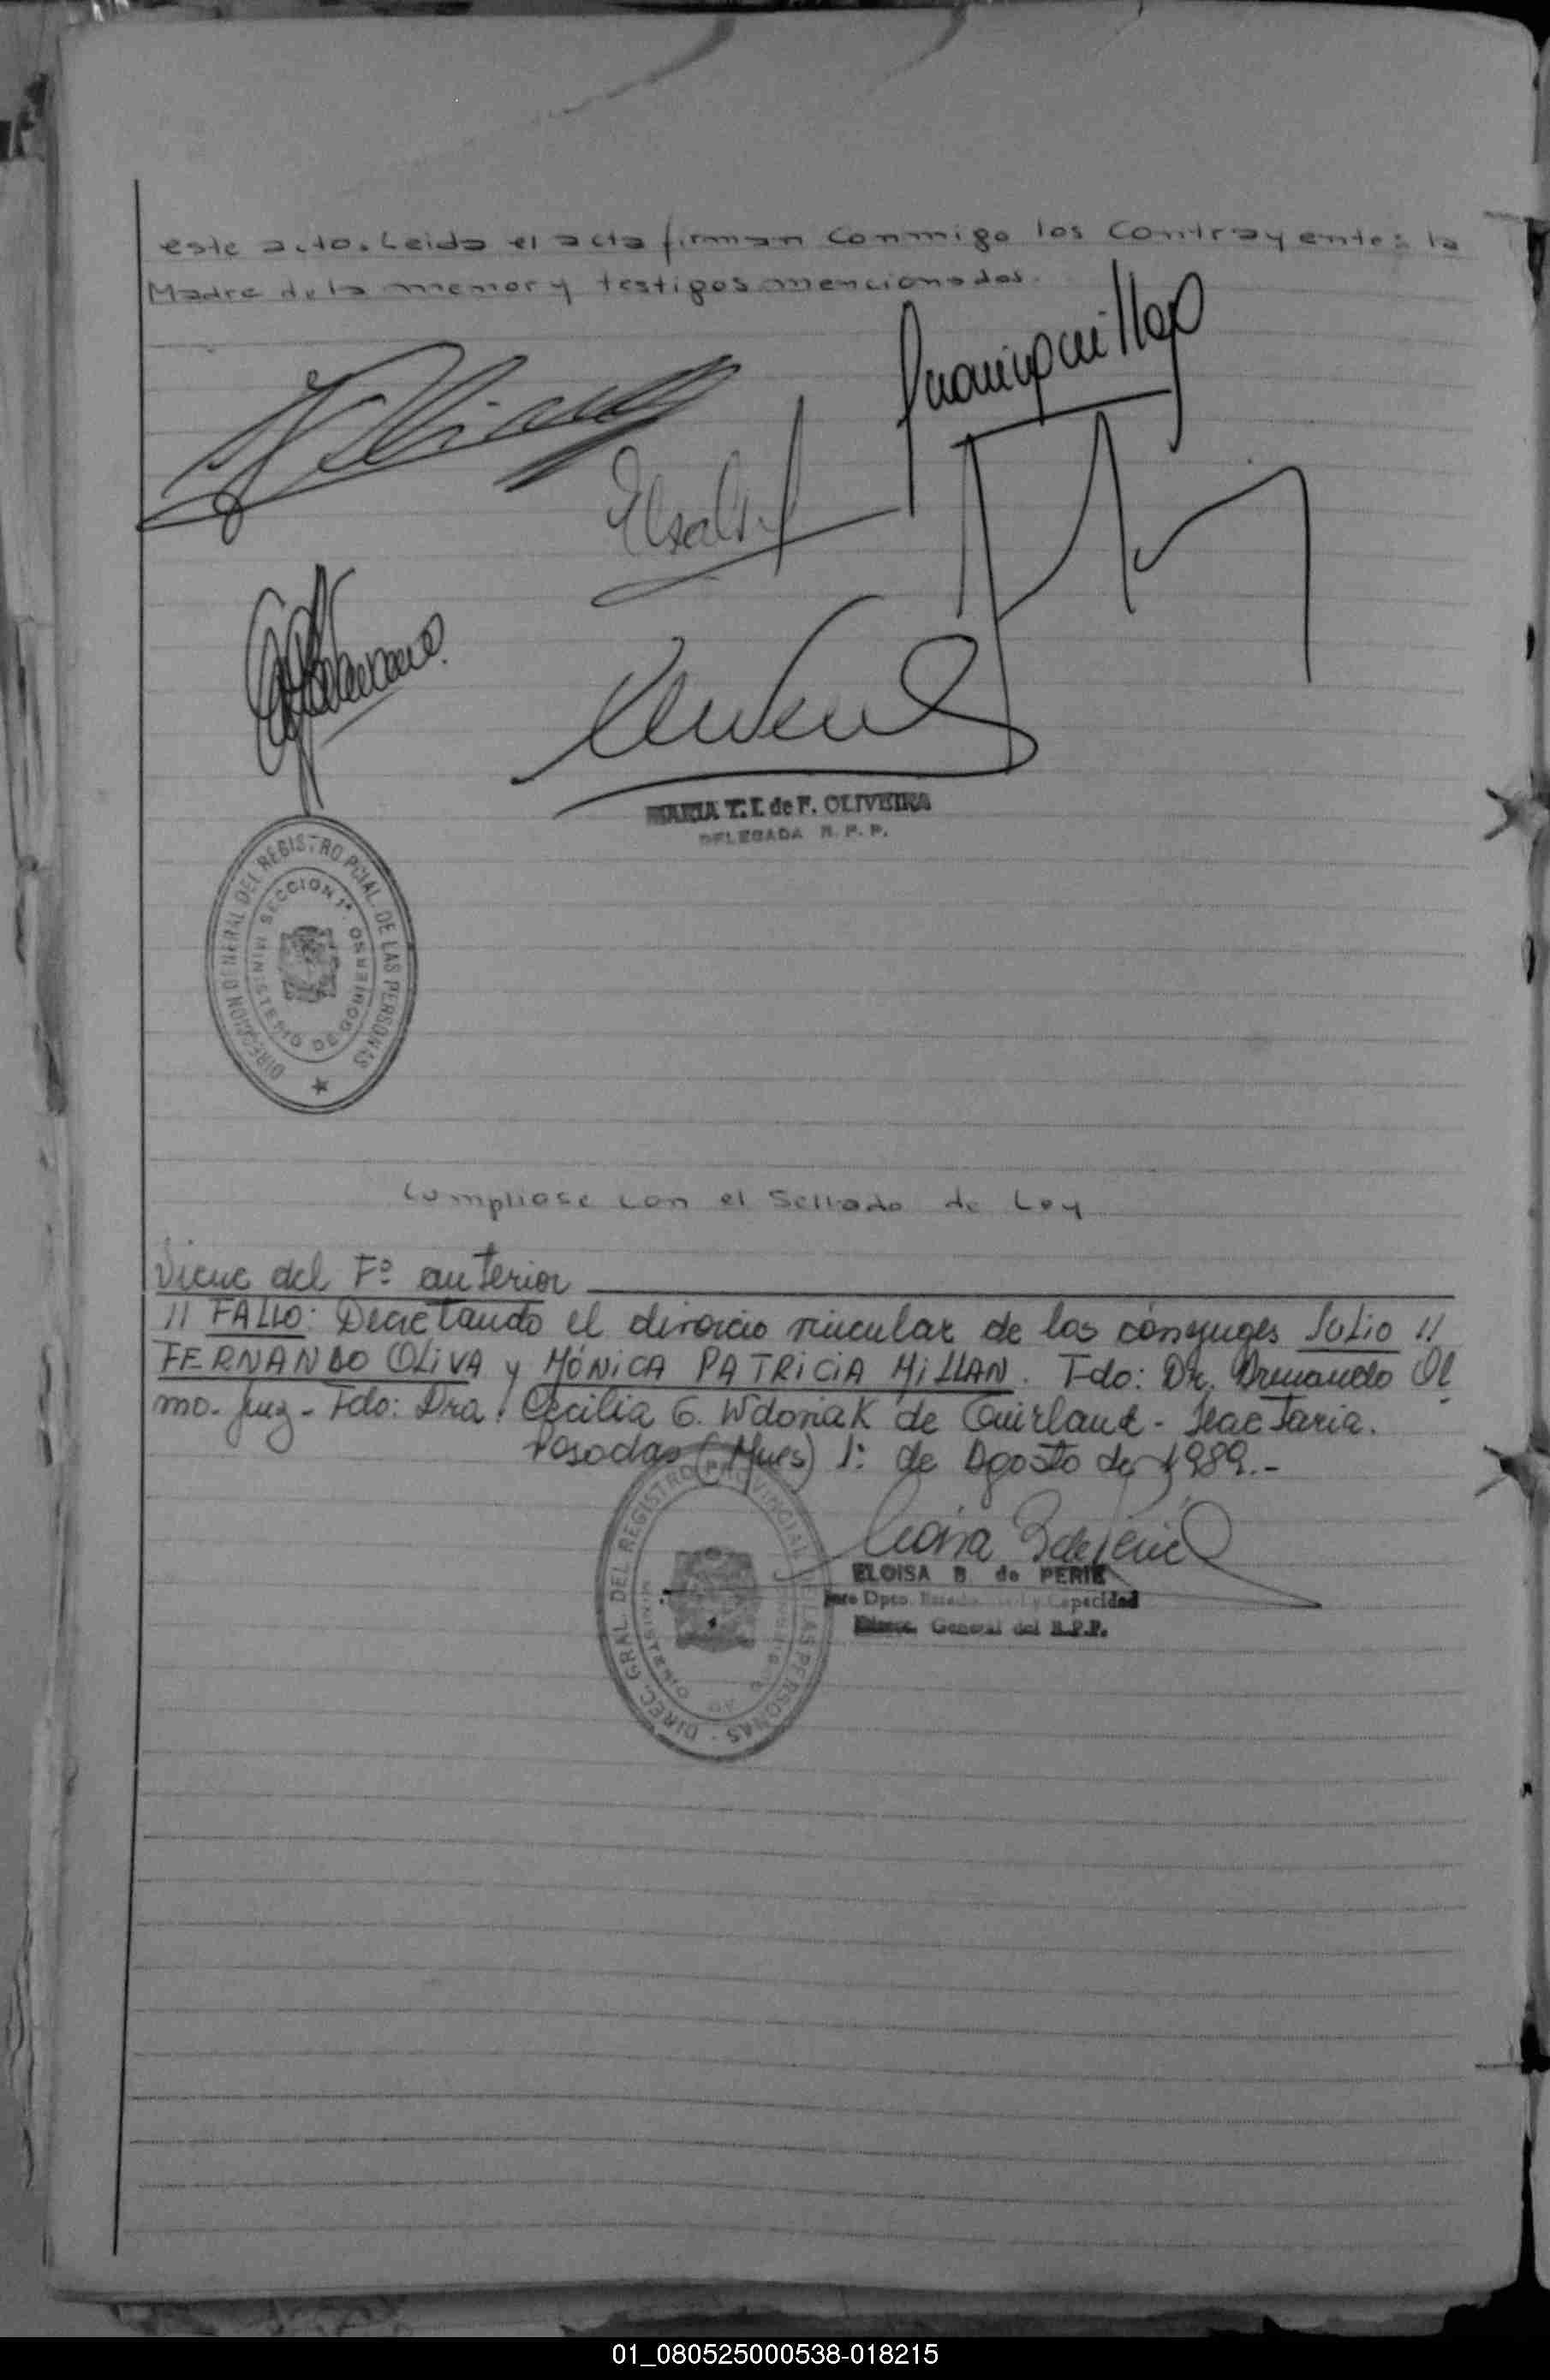 este acto. Leida el acta firman conmigo los contrayentes la
Madre de la menor y testigos mencionados.
MARIA T. I. de F. OLIVEIRA
DELEGADA R. P. P.
DIRECCION GENERAL DEL REGISTRO PCIAL. DE LAS PERSONAS
SECCION 1ª.
MINISTERIO DE GOBIERNO
Cumpliose con el Sellado de Ley
Viene del Fº anterior
// FALLO: Decretando el divorcio vincular de los cónyuges JULIO //
FERNANDO OLIVA y MÓNICA PATRICIA MILLAN. Fdo: Dr. Armando Ol
mo. Juez - Fdo: Dra. Cecilia G. Wdoviak de - Secretaria.
Posadas (Mnes) 1º de Agosto de 1989.-
ELOISA B. de PERIE
Jefe Dpto. Estado Civil y Capacidad
Direcc. General del R.P.P.
DIREC. GRAL. DEL REGISTRO PROVINCIAL DE LAS PERSONAS
MINISTERIO DE GOBIERNO
01_080525000538-018215